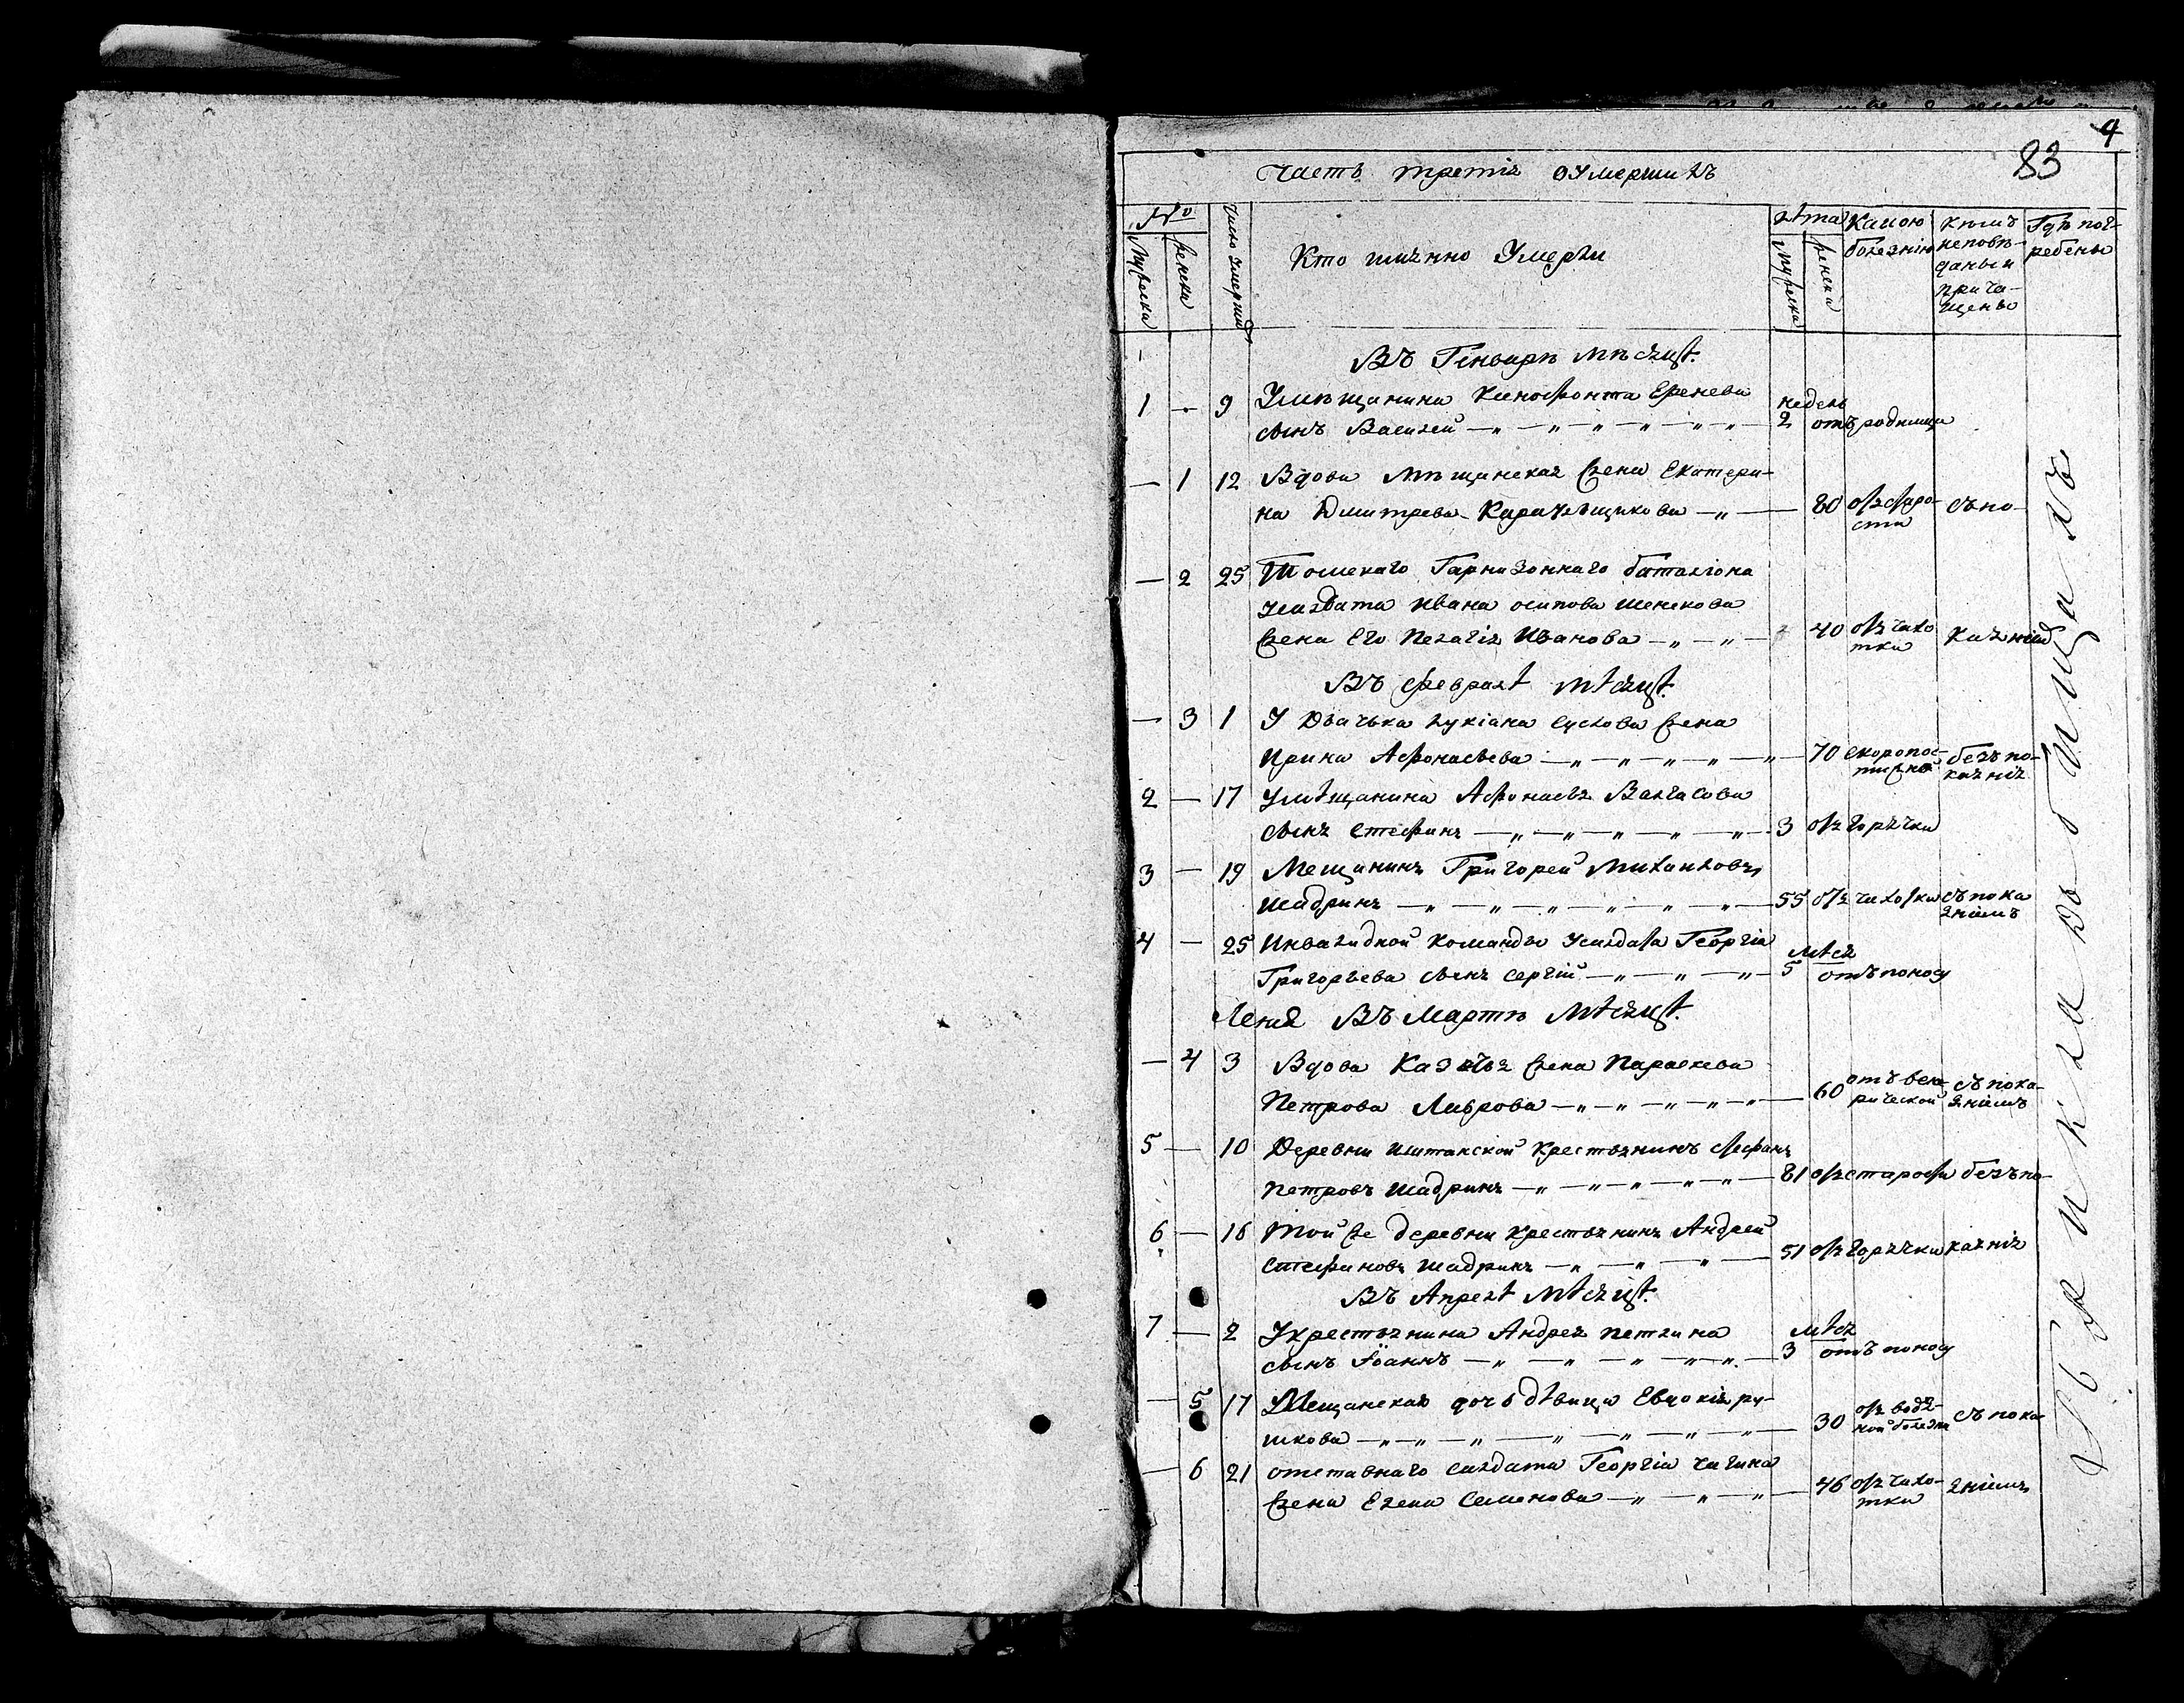 4
83
Часть третiя оумершихъ
№
Мужеска
Женска
Число умерших
Кто имянно Умерли
лѣта
Мужеска
женска
Какою болезнiю
кѣмъ исповѣданы и причащены
Гдѣ погребены
Въ Генварѣ мѣсяцѣ.
1 — 9 Умѣщанина Ксенофонта
сынъ Василей — недель 2 отъ родимца
— 1 12 Вдова Мѣщанская жена Екатери-
на Дмитрева — 80 отъ старости съ по-
— 2 25 Томскаго Гарнизоннаго баталiона
усалдата Ивана осипова
жена Его Пелагiя Иванова — 40 отъ чахотки каянiем
Въ февралѣ мѣсяцѣ.
— 3 1 У Дьячька лукiана Суслова жена
Ирина Афонасьева — 70 скоропостижно безъ покаянiя
2 — 17 Умѣщанина Афонасья Валгасова
сынъ Стефанъ — 3 отъ горячки
3 — 19 Мещанинъ Григорей Михаиловъ
Шадринъ — 55 отъ чахотки съ покаянiемъ
4 — 25 Инвалидной команды усалдата Георгiа
Григорьева сынъ Сергiй — мѣся 5 отъ поносу
Въ Мартѣ мѣсяцѣ.
— 4 3 Вдова Казачья жена Параскева
Петрова Лаврова — 60 отъ венерической съ покаянiемъ
5 — 10 Деревни Иштанской крестьянинъ Стефанъ
Петровъ Шадринъ — 81 отъ старости безъ по-
6 — 16 Той же деревни крестьянинъ Андрей
Стефановъ Шадринъ — 51 отъ горячки каянiя
Въ Апрелѣ мѣсяцѣ.
7 — 2 Укрестьянина Андрея Петлина
сынъ Iоаннъ — мѣся 3 отъ поносу
— 5 17 Мещанская дочь дѣвица Евдокiя ру-
шкова — 30 отъ водяной болезни съ пока-
— 6 21 отставнаго салдата Георгiа чагина
жена Елена Семенова — 46 отъ чахотки янiемъ
на кладбищахъ